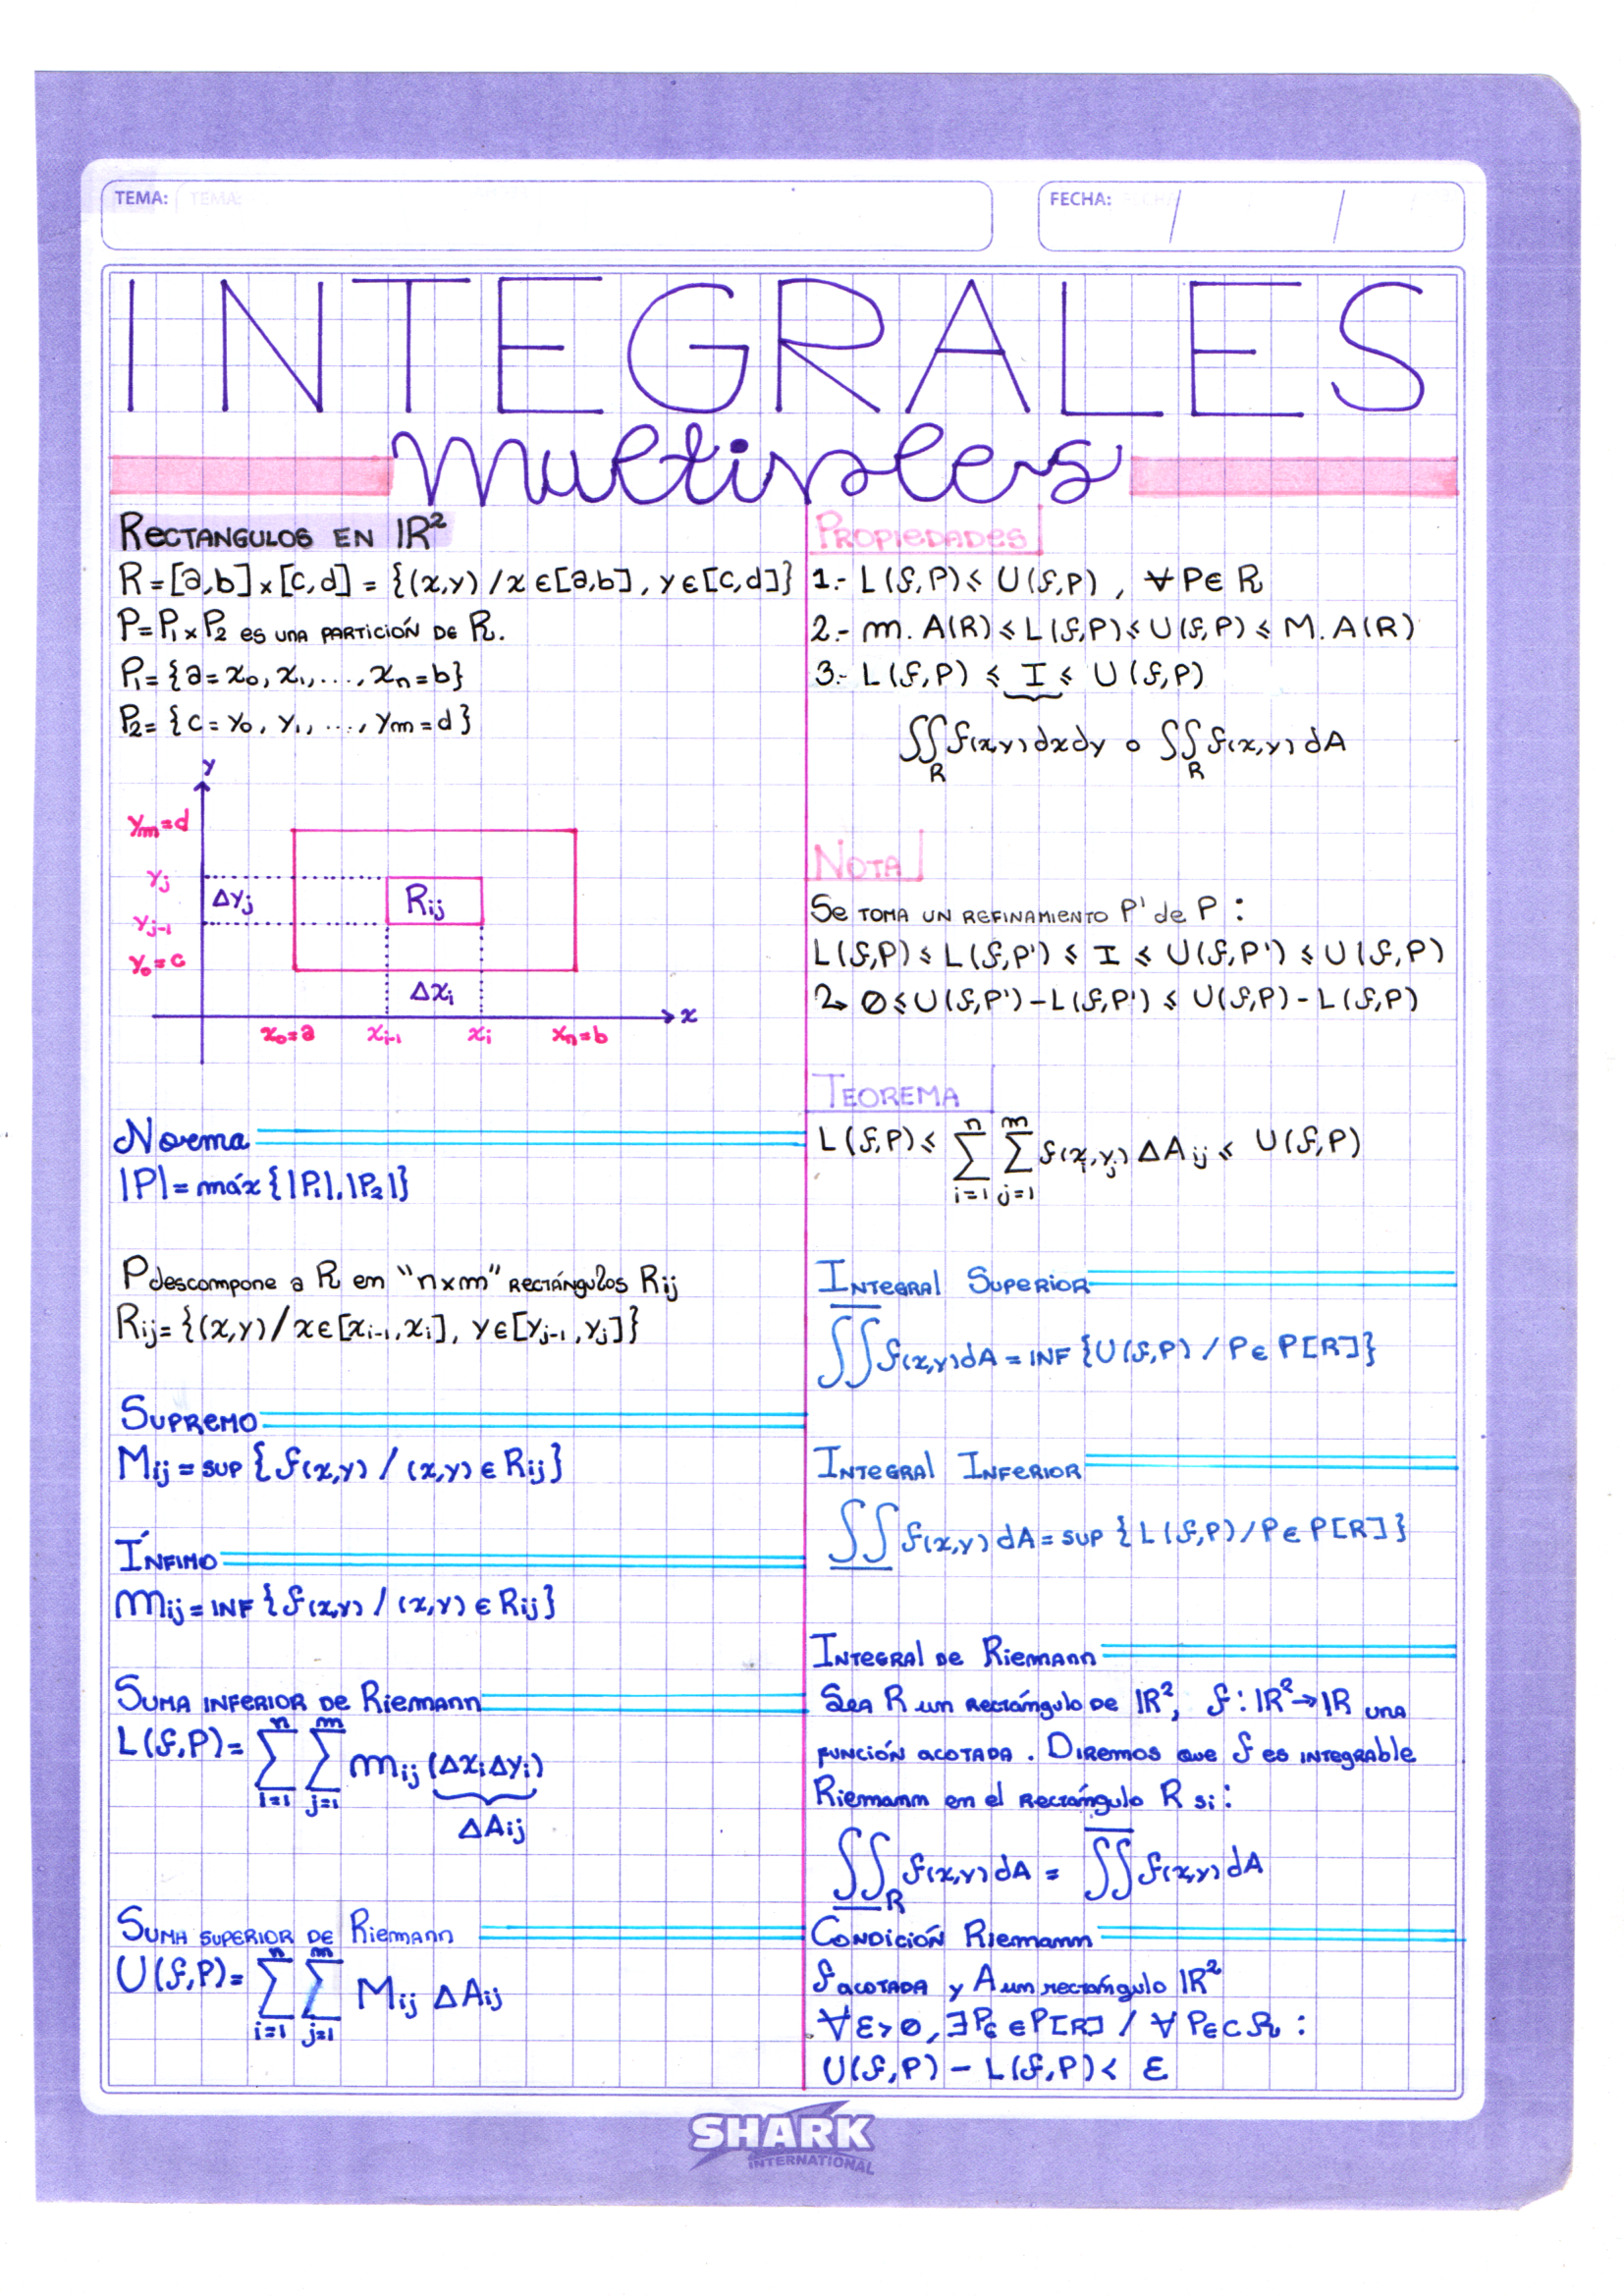 TEMA:
FECHA: / /
INTEGRALES
multiples
RECTANGULOS EN ℝ²
R = [a,b] x [c,d] = {(x,y) / x ∈ [a,b], y ∈ [c,d]}
P = P₁ x P₂ es una partición de R.
P₁ = {a = x₀, x₁, ..., xₙ = b}
P₂ = {c = y₀, y₁, ..., yₘ = d}
y
yₘ = d
yⱼ
Δyⱼ
Rᵢⱼ
yⱼ₋₁
y₀ = c
Δxᵢ
x
x₀ = a xᵢ₋₁ xᵢ xₙ = b
Norma
|P| = máx {|P₁|, |P₂|}
P descompone a R en "n x m" rectángulos Rij
Rij = {(x,y) / x ∈ [xᵢ₋₁, xᵢ], y ∈ [yⱼ₋₁, yⱼ]}
SUPREMO
Mij = sup {f(x,y) / (x,y) ∈ Rij}
ÍNFIMO
mij = INF {f(x,y) / (x,y) ∈ Rij}
SUMA INFERIOR DE Riemann
n m
L(f,P) = Σ Σ mij (Δxᵢ Δyᵢ)
i=1 j=1
ΔAij
SUMA SUPERIOR DE Riemann
n m
U(f,P) = Σ Σ Mij ΔAij
i=1 j=1
PROPIEDADES
1.- L(f,P) ≤ U(f,P), ∀ P ∈ R
2.- m. A(R) ≤ L(f,P) ≤ U(f,P) ≤ M. A(R)
3.- L(f,P) ≤ I ≤ U(f,P)
∬ f(x,y) dxdy o ∬ f(x,y) dA
R R
NOTA
Se toma un refinamiento P' de P :
L(f,P) ≤ L(f,P') ≤ I ≤ U(f,P') ≤ U(f,P)
↳ 0 ≤ U(f,P') - L(f,P') ≤ U(f,P) - L(f,P)
TEOREMA
n m
L(f,P) ≤ Σ Σ f(xᵢ,yⱼ) ΔAij ≤ U(f,P)
i=1 j=1
INTEGRAL SUPERIOR
∬ f(x,y) dA = INF {U(f,P) / P ∈ P[R]}
INTEGRAL INFERIOR
∬ f(x,y) dA = sup {L(f,P) / P ∈ P[R]}
INTEGRAL DE Riemann
Sea R un rectángulo de ℝ², f : ℝ² → ℝ una
función acotada. Diremos que f es integrable
Riemann en el rectángulo R si:
∬ f(x,y) dA = ∬ f(x,y) dA
R
CONDICIÓN Riemann
f acotada y A un rectángulo ℝ²
∀ ε > 0, ∃ Pє ∈ P[R] / ∀ Pє ⊂ R :
U(f,P) - L(f,P) < ε
SHARK
INTERNATIONAL